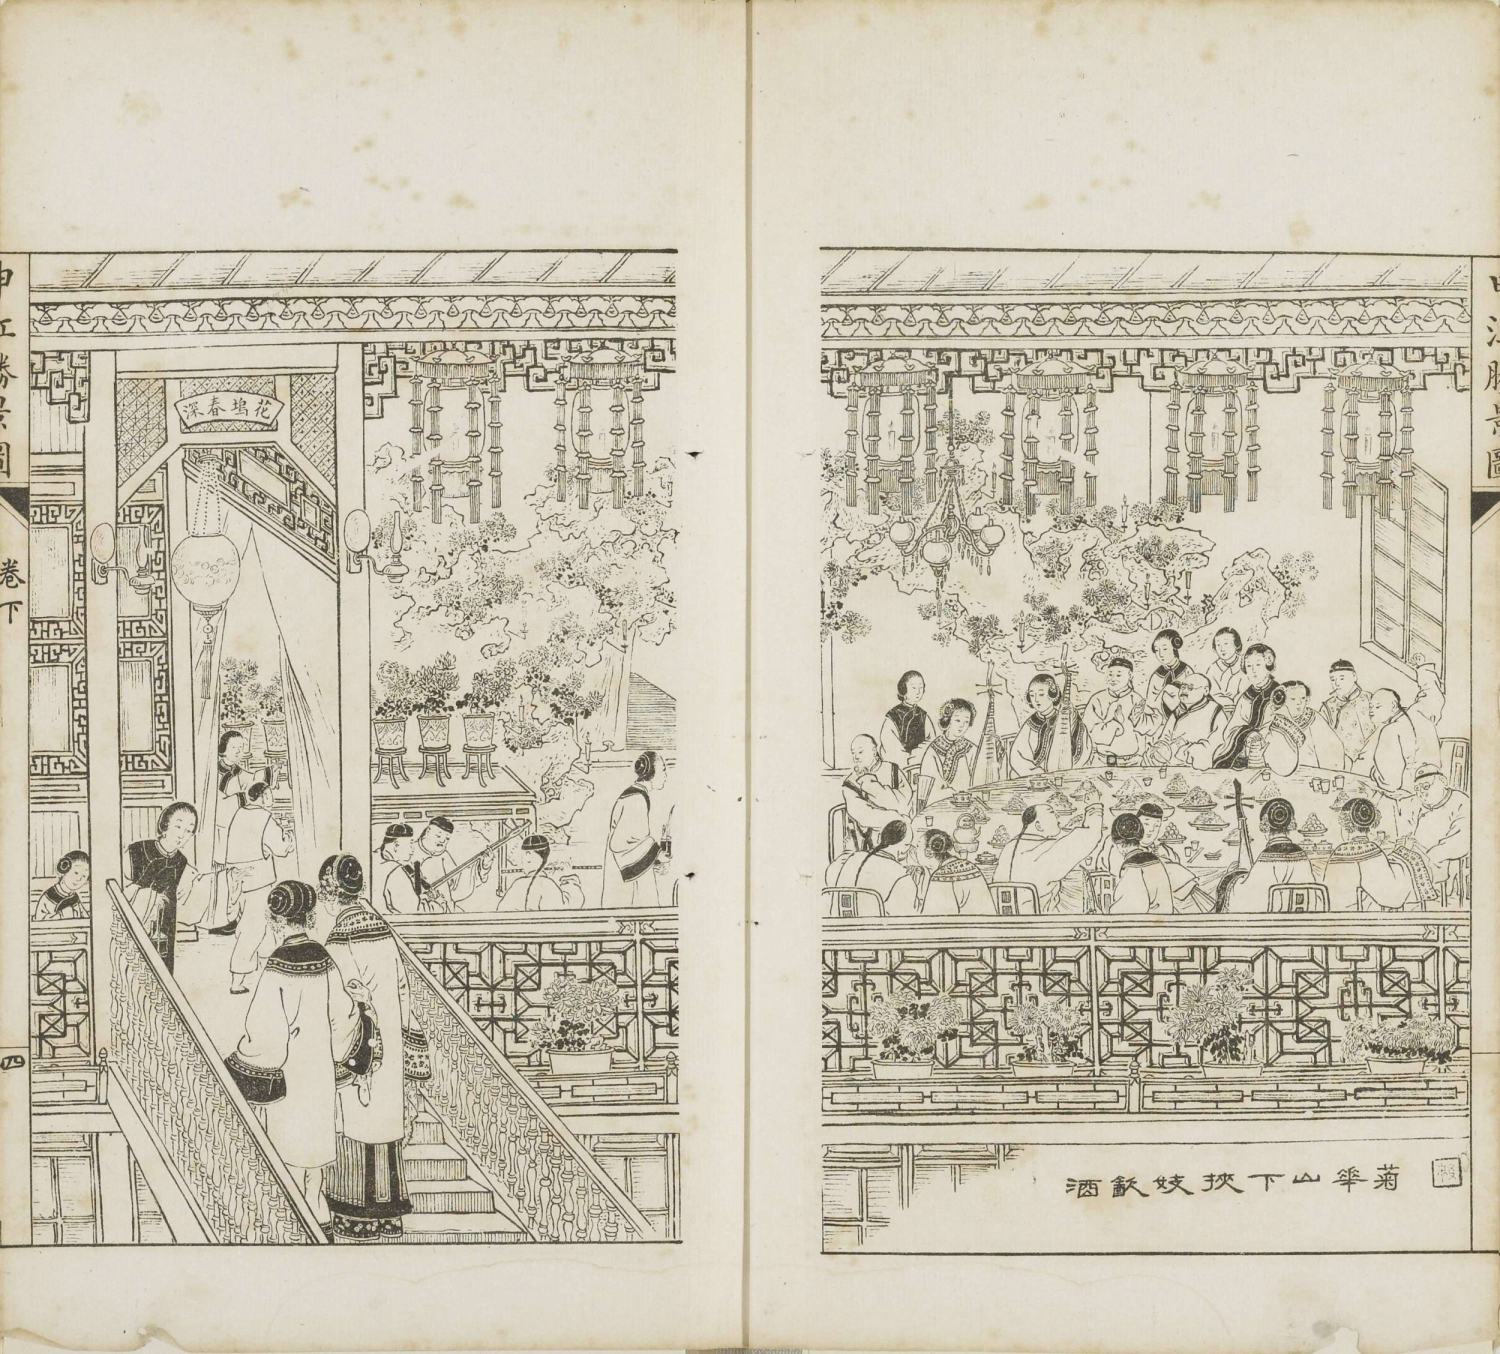 申江勝景圖
菊華山下挾妓飲酒
花塢春深
申江勝景圖
卷下
四